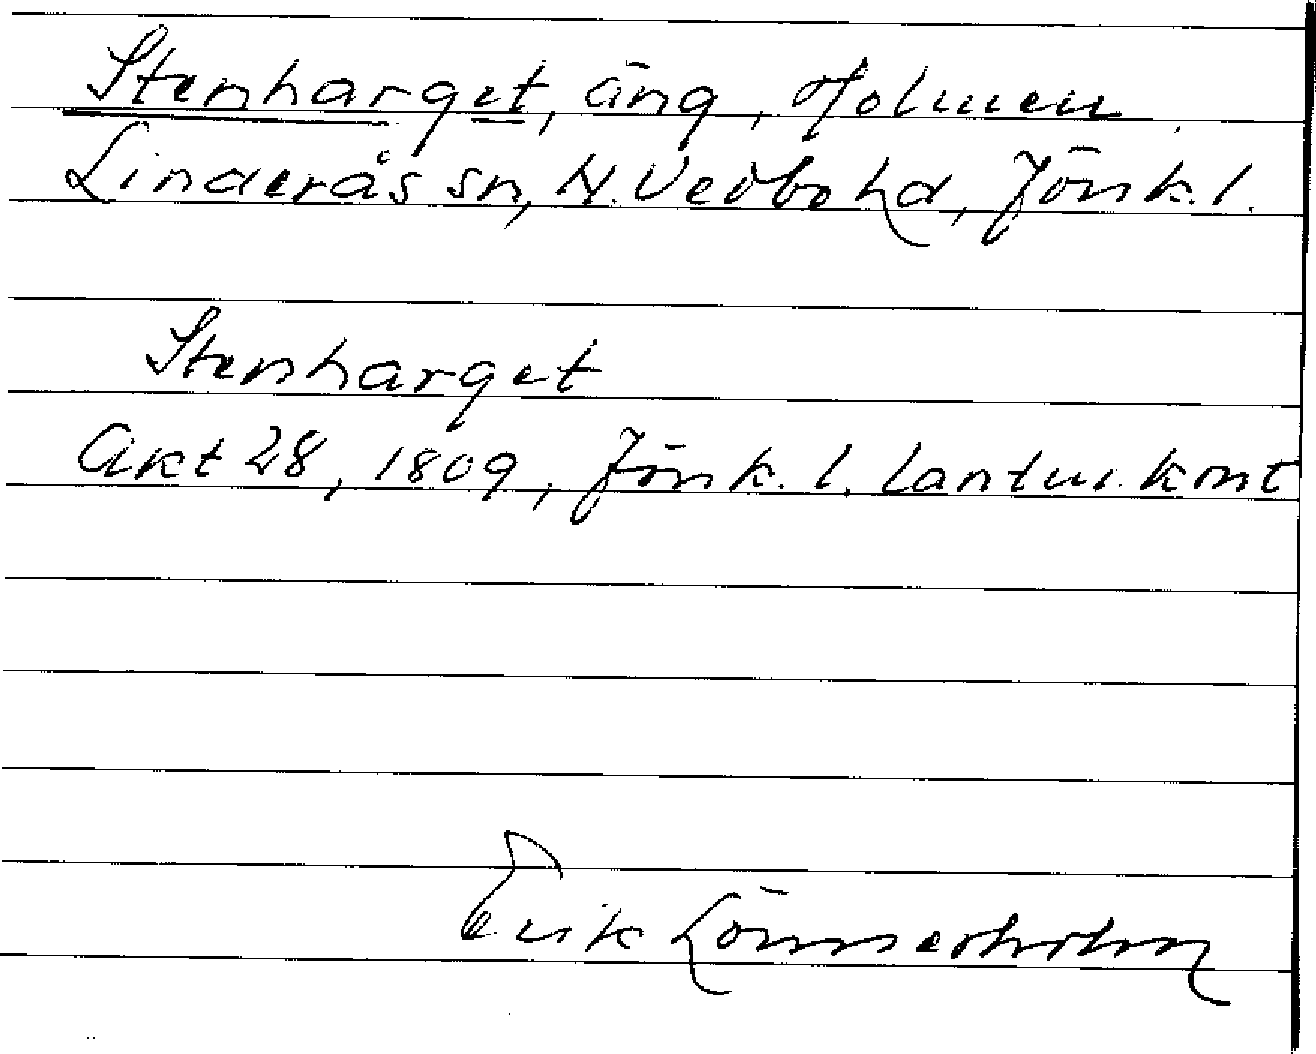 Stenharget, äng, Holmen
Linderås sn, N. Vedbo hd, Jönk. l.
Stenharget
Akt 28, 1809, Jönk. l. Lantm. kont
Erik Lönnerholm